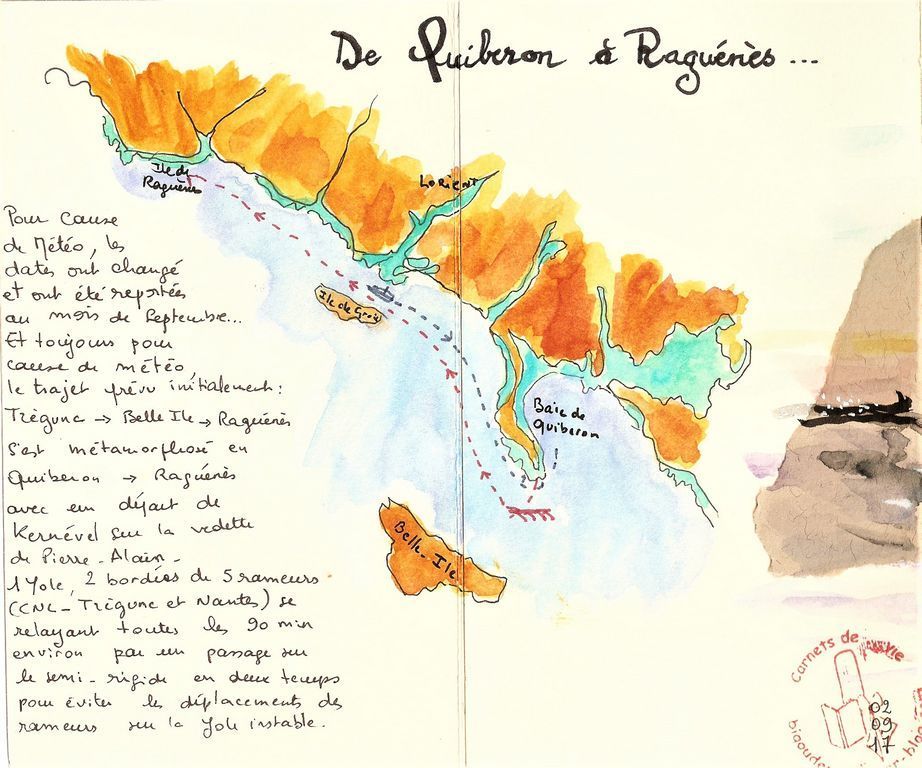 De Quiberon à Raguénès...
Ile de
Raguénès
Lorient
Ile de Groix
Baie de
Quiberon
Belle-Ile
Pour cause
de Météo, les
dates ont changé
et ont été reportées
au mois de Septembre...
Et toujours pour
cause de météo,
le trajet prévu initialement :
Trégunc → Belle Ile → Raguénès
s'est métamorphosé en
Quiberon → Raguénès
avec un départ de
Kernével sur la vedette
de Pierre-Alain.
1 Yole, 2 bordées de 5 rameurs
(CNC - Trégunc et Nantes) se
relayant toutes les 90 min
environ par un passage sur
le semi-rigide en deux temps
pour éviter les déplacements des
rameurs sur la Yole instable.
Carnets de
02
09
17